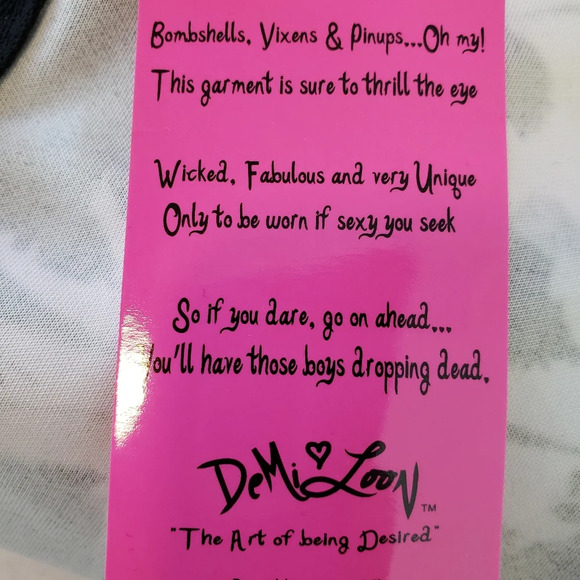 Bombshells, Vixens & Pinups...Oh my!
This garment is sure to thrill the eye
Wicked, Fabulous and very Unique
Only to be worn if sexy you seek
So if you dare, go on ahead...
You'll have those boys dropping dead.
DeMi Loon™
"The Art of being Desired"